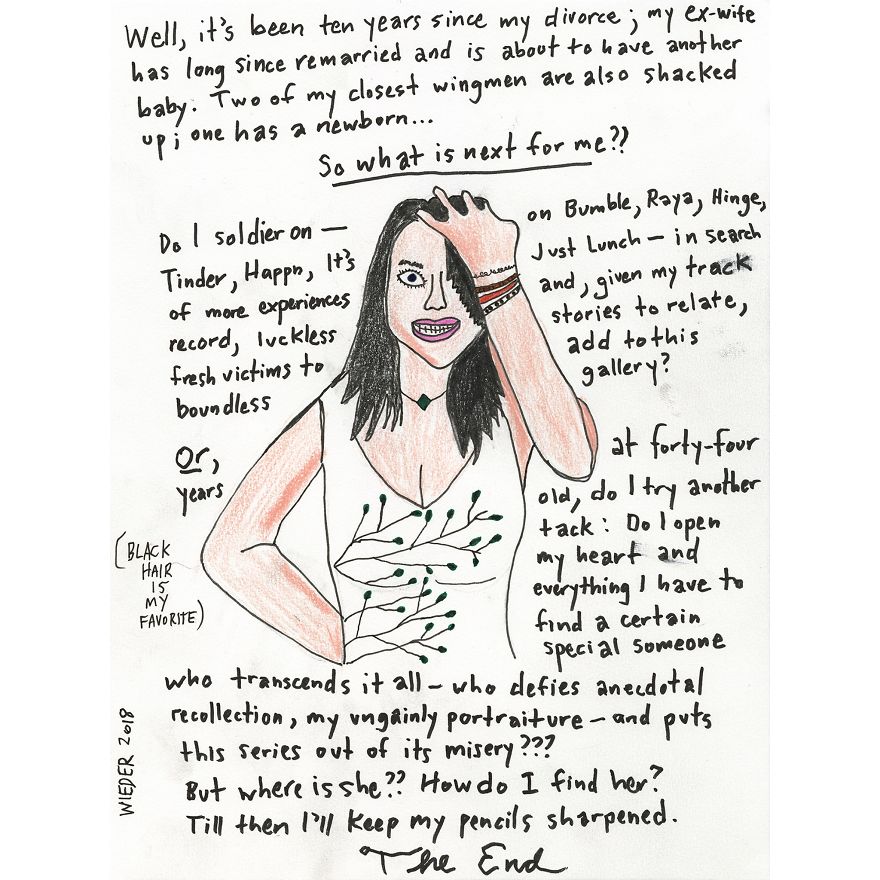 Well, it's been ten years since my divorce; my ex-wife
has long since remarried and is about to have another
baby. Two of my closest wingmen are also shacked
up; one has a newborn...
So what is next for me??
Do I soldier on — on Bumble, Raya, Hinge,
Tinder, Happn, It's Just Lunch — in search
of more experiences and, given my track
record, luckless stories to relate,
fresh victims to add to this
boundless gallery?
Or, at forty-four
years old, do I try another
tack: Do I open
my heart and
everything I have to
find a certain
special someone
(BLACK
HAIR
IS
MY
FAVORITE)
who transcends it all — who defies anecdotal
recollection, my ungainly portraiture — and puts
this series out of its misery???
But where is she?? How do I find her?
Till then I'll keep my pencils sharpened.
The End
WIEDER 2018